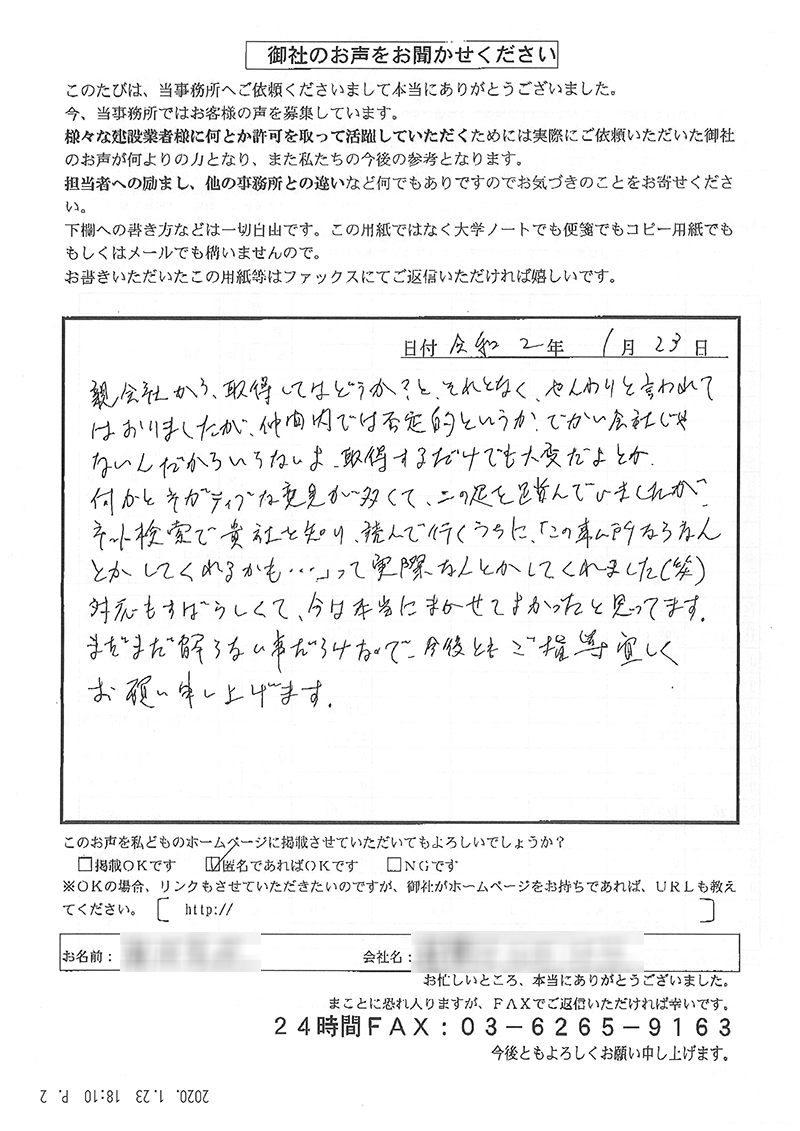 御社のお声をお聞かせください
このたびは、当事務所へご依頼くださいまして本当にありがとうございました。
今、当事務所ではお客様の声を募集しています。
様々な建設業者様に何とか許可を取って活躍していただくためには実際にご依頼いただいた御社
のお声が何よりの力となり、また私たちの今後の参考となります。
担当者への励まし、他の事務所との違いなど何でもありですのでお気づきのことをお寄せくださ
い。
下欄への書き方などは一切自由です。この用紙ではなく大学ノートでも便箋でもコピー用紙でも
もしくはメールでも構いませんので。
お書きいただいたこの用紙等はファックスにてご返信いただければ嬉しいです。
日付 令和 2 年 1 月 23 日
親会社から、取得してはどうか?と、それとなく、やんわりと言われて
はおりましたが、仲間内では否定的というか、でかい会社じゃ
ないんだからいらないよ、取得するだけでも大変だよとか、
何かとネガティブな意見が多くて、二の足を踏んでいましたが、
ネット検索で貴社を知り、読んで行くうちに、「この事ム所ならなん
とかしてくれるかも・・・」って実際なんとかしてくれました(笑)
対応もすばらしくて、今は本当にまかせてよかったと思ってます。
まだまだ解らない事だらけなので、今後ともご指導宜しく
お願い申し上げます。
このお声を私どものホームページに掲載させていただいてもよろしいでしょうか?
□掲載OKです ☑匿名であればOKです □NGです
※OKの場合、リンクもさせていただきたいのですが、御社がホームページをお持ちであれば、URLも教え
てください。 [ http:// ]
お名前: 会社名:
お忙しいところ、本当にありがとうございました。
まことに恐れ入りますが、FAXでご返信いただければ幸いです。
24時間FAX:03-6265-9163
今後ともよろしくお願い申し上げます。
2020. 1.23 18:10 P. 2